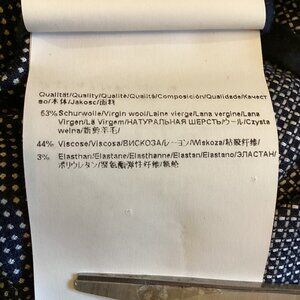 Qualität/Quality/Qualité/Qualità/Composición/Qualidade/Качест
во/本体/Jakosc/面料
53% Schurwolle/Virgin wool/Laine vierge/Lana vergine/Lana
Virgen/Lã Virgem/НАТУРАЛЬНАЯ ШЕРСТЬ/ウール/Czysta
welna/新的羊毛/
44% Viscose/Viscosa/ВИСКОЗА/レーヨン/Wiskoza/粘胶纤维/
3% Elasthan/Elastane/Elasthanne/Elastan/Elastano/ЭЛАСТАН/
ポリウレタン/聚氨酯弹性纤维/氨纶